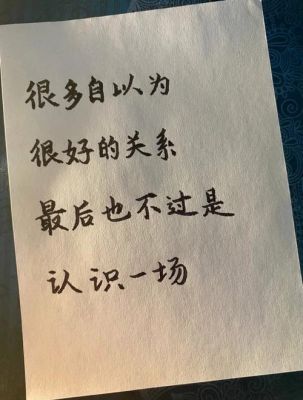 很多自以为
很好的关系
最后也不过是
认识一场